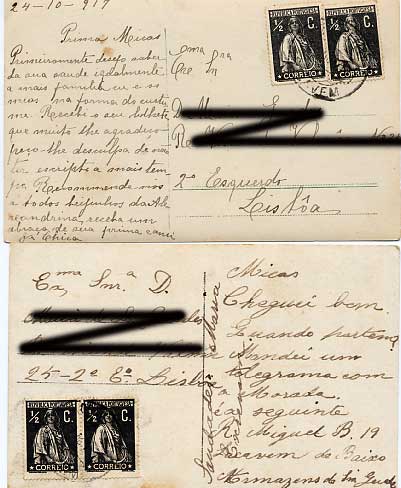 24-10-917
Prima Micas
Primeiramente desejo saber
da sua saude egualmente
a mais familia eu e os
meus na forma do custu
me. Recebi o seu bilhete
que muito lhe agradeço
peço-lhe desculpa de não
ter escripto a mais tem
po. Recommende-nos
a todos beijinhos da Ale
xandrina, receba um
abraço de sua prima
Chica
Exma Snra
D.
2º Esquerdo
Lisbôa
REPUBLICA PORTUGUESA
½ C.
CORREIO
REPUBLICA PORTUGUESA
½ C.
CORREIO
Exma Snra D.
25-2º Eº Lisboa
REPUBLICA PORTUGUESA
½ C.
CORREIO
REPUBLICA PORTUGUESA
½ C.
CORREIO
Saudades
Micas
Cheguei bem.
Quando
Mandei um
telegrama com
a Morada
é a seguinte
R. Miguel B. 19
Baixo
Armazens